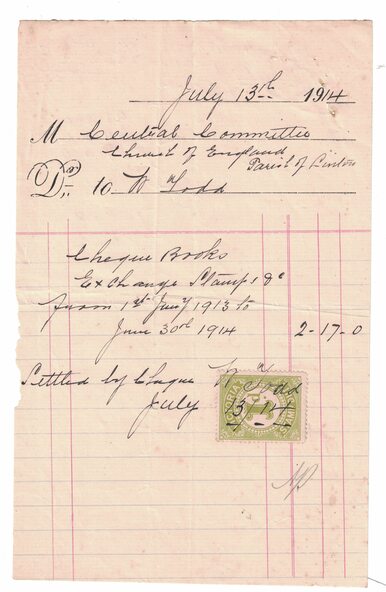 July 13th 1914
M Central Committee
Church of England
Parish of Linton
Dr. to W Todd
Cheque Books
Exchange Stamps &c
from 1st Jany 1913 to
June 30th 1914 2-17-0
Settled by Cheque W Todd
July 13/14